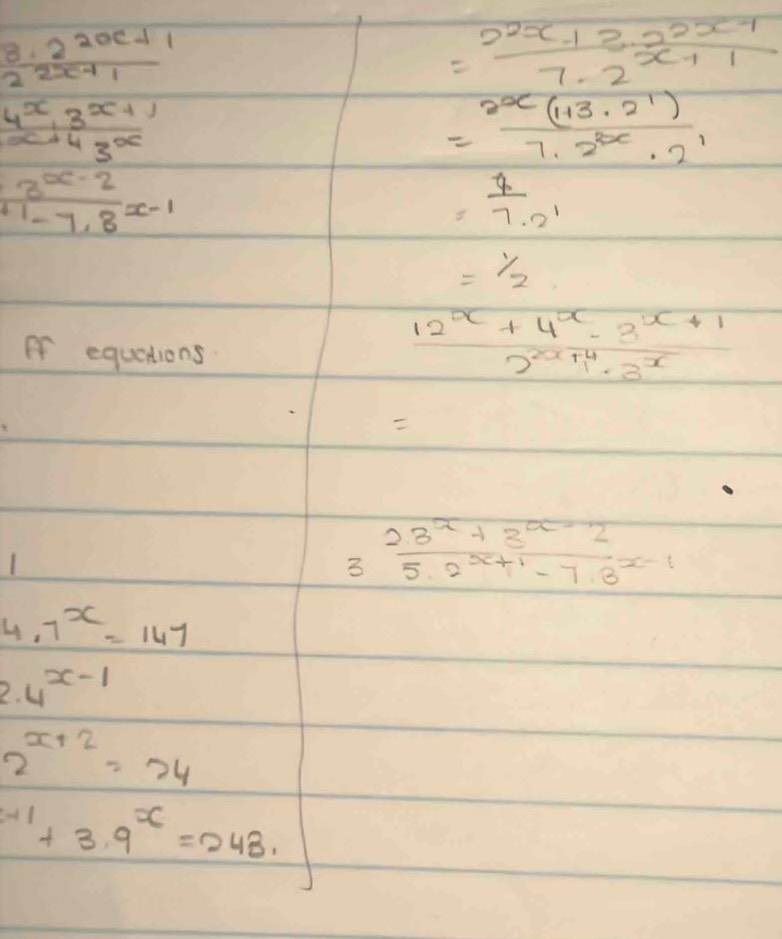 3.2^{2x+1}
2^{2x+1}
4^x.3^{x+1}
x+4 3^x
3^{x-2}
+1-7.3^{x-1}
ff equations.
1
4.7^x=147
2.4^{x-1}
2^{x+2}=24
+1+3.9^x=243.
=2^{2x}+3.2^{2x+1}
7.2^{x+1}
=2^x(1+3.2^1)
7.2^{2x}.2^1
=
7.2^1
=1/2
12^x+4^x-3^{x+1}
2^{2x+4}.3^x
=
3 2.3^x+3^{x-2}
5.2^{x+1}-7.3^{x-1}